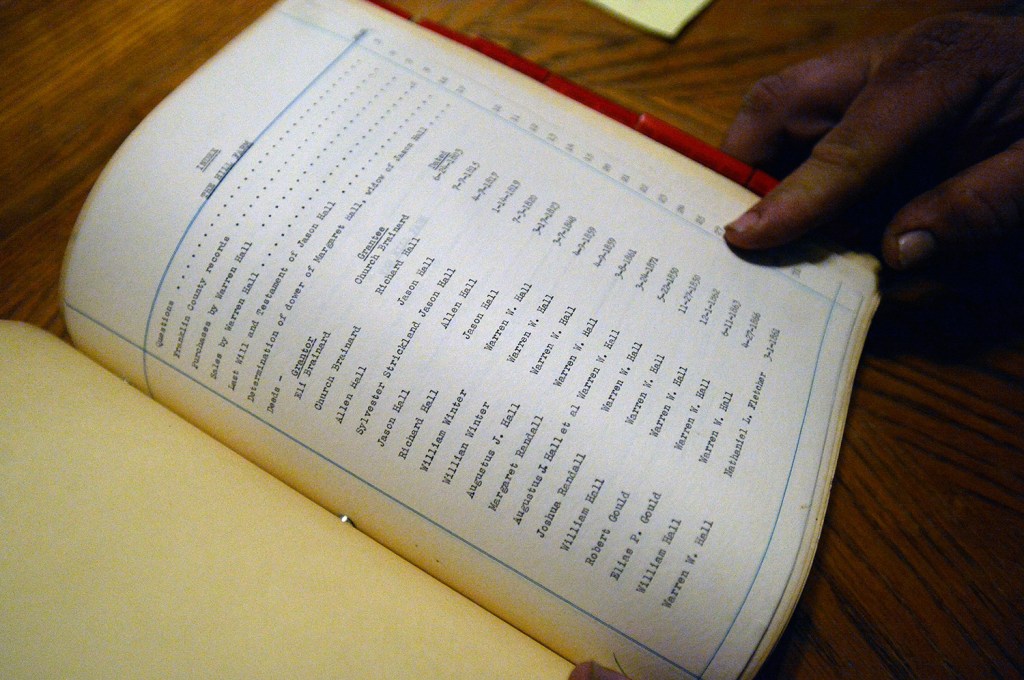 INDEX
THE HILL FARM
Questions
Franklin County records
Purchases by Warren Hall
Sales by Warren Hall
Last Will and Testament of Jason Hall
Determination of dower of Margaret Hall, widow of Jason Hall
Deeds - Grantor Grantee Dated
Eli Brainard Church Brainard
Church Brainard Richard Hall 7-7-1815
Allen Hall Jason Hall 4-7-1817
Sylvester Strickland Jason Hall
Jason Hall Allen Hall 7-3-1820
Richard Hall Jason Hall
William Winter Warren W. Hall
William Winter Warren W. Hall
Augustus J. Hall Warren W. Hall
Margaret Randall Warren W. Hall
Augustus J. Hall et al Warren W. Hall
Joshua Randall Warren W. Hall
William Hall Warren W. Hall
Robert Gould Warren W. Hall
Elias P. Gould Warren W. Hall
William Hall Warren W. Hall
Warren W. Hall Nathaniel L. Fletcher